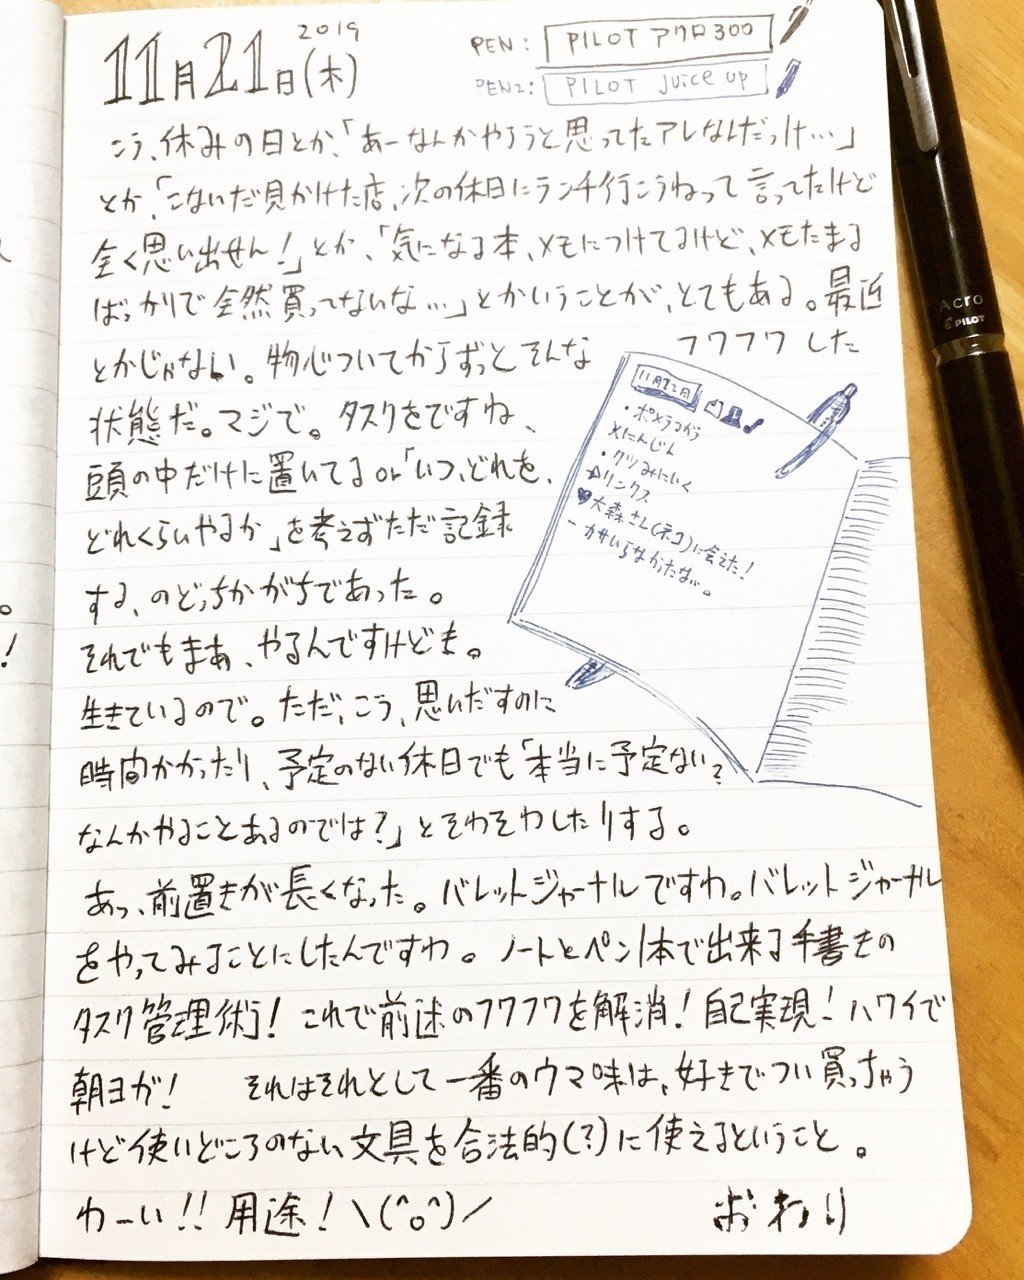 2019
11月21日(木)
PEN: PILOT アクロ300
PEN2: PILOT Juice up
こう、休みの日とか、「あーなんかやろうと思ってたアレなんだっけ…」
とか、「こないだ見かけた店、次の休日にランチ行こうねって言ってたけど
全く思い出せん!」とか、「気になる本、メモにつけてるけど、メモたまる
ばっかりで全然買ってないな…」とかいうことが、とてもある。最近
とかじゃない。物心ついてからずっとそんな フワフワした
状態だ。マジで。タスクをですね、
頭の中だけに置いてる or 「いつ、どれを、
どれくらいやるか」を考えずただ記録
する、のどっちかがちであった。
それでもまあ、やるんですけども。
生きているので。ただ、こう、思いだすのに
時間かかったり、予定のない休日でも「本当に予定ない?
なんかやることあるのでは?」とそわそわしたりする。
あっ、前置きが長くなった。バレットジャーナルですわ。バレットジャーナル
をやってみることにしたんですわ。ノートとペン1本で出来る手書きの
タスク管理術!これで前述のフワフワを解消!自己実現!ハワイで
朝ヨガ! それはそれとして一番のウマ味は、好きでつい買っちゃう
けど使いどころのない文具を合法的(?)に使えるということ。
わーい!!用途!\(^o^)/ おわり
11月22日
・ポメラ
×にんじん
・クツみにいく
☆リンクス
♥大森さん(ネコ)に会えた!
- カサいらなかったな…。
Acro
PILOT
。
!